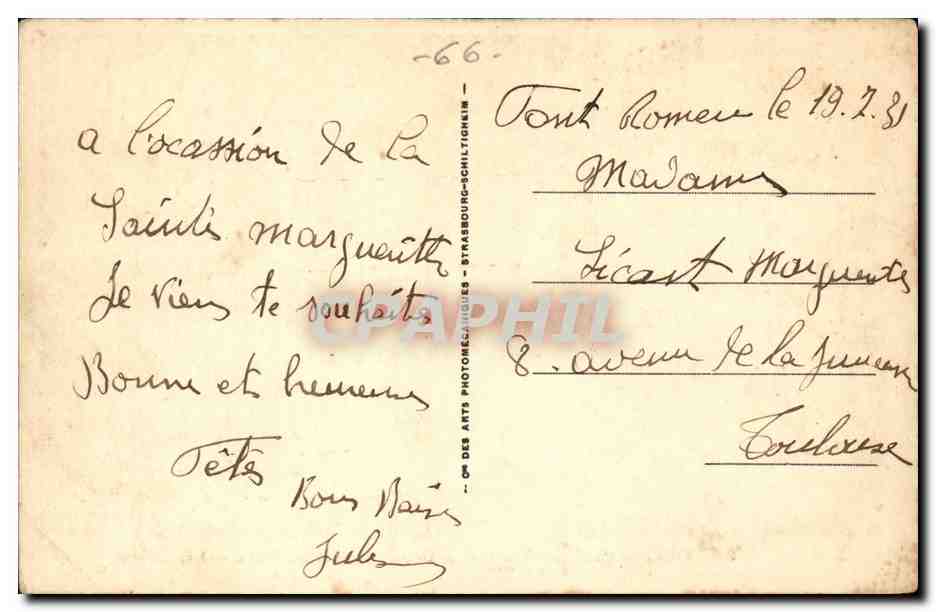 -66-
a l'ocassion de la
Sainte marguerithe
Je viens te souhaites
Bonne et heureuse
Fêtes
Bons Baises
Jules
Cie DES ARTS PHOTOMÉCANIQUES - STRASBOURG-SCHILTIGHEIM
Font Romeu le 19.7.31
Madame
Sicart Marguerite
8. avenue de la
Toulouse
CPAPHIL